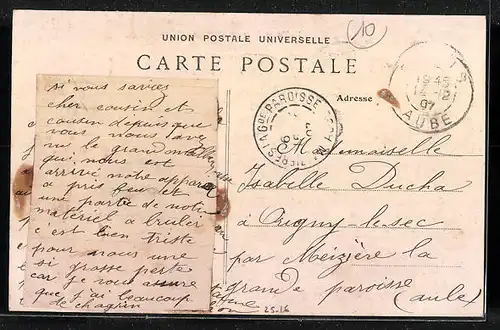 10
UNION POSTALE UNIVERSELLE
CARTE POSTALE
Adresse
1945
12-12
07
AUBE
si vous saviez
cher cousin et
cousin depuis que
vous nous avez
vu le grand malheur
qui nous est
arrivé notre appareil
a pris feu et
une partie de notre
matériel a bruler
c'est bien triste
pour nous une
si grosse perte
car je vous assure
que j'ai beaucoup
de chagrin
Mademoiselle
Isabelle Ducha
à Ougny-le-sec
par Meizière la
grande paroisse
(aube)
25.16